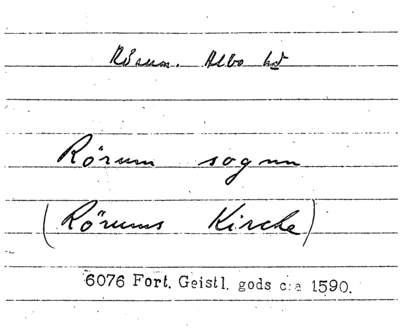 Rörum. Albo hd
Rörum sognn
(Rörums Kirche)
6076 Fort. Geistl. gods c:a 1590.